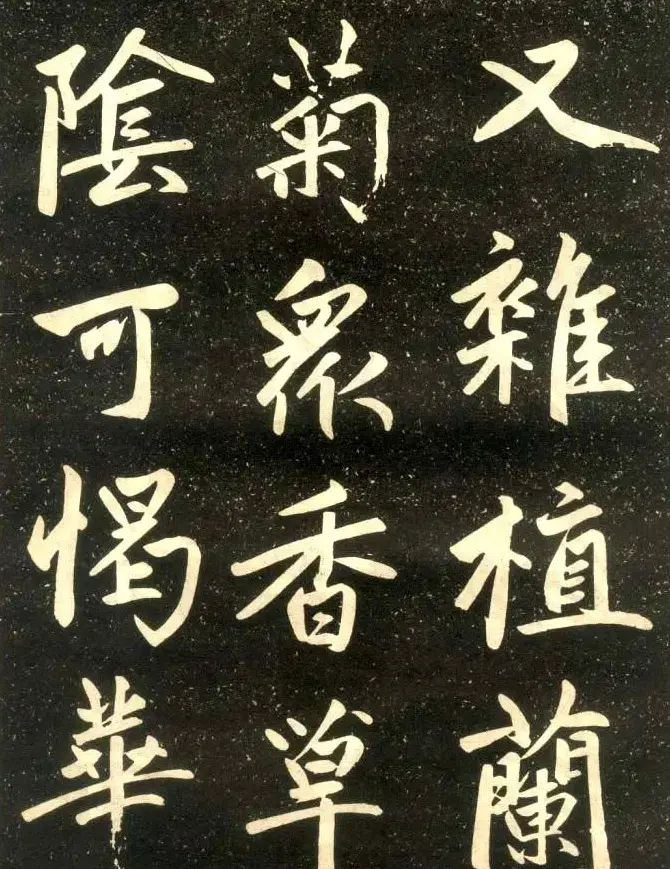 又雜植蘭
菊衆香草
陰可愒華